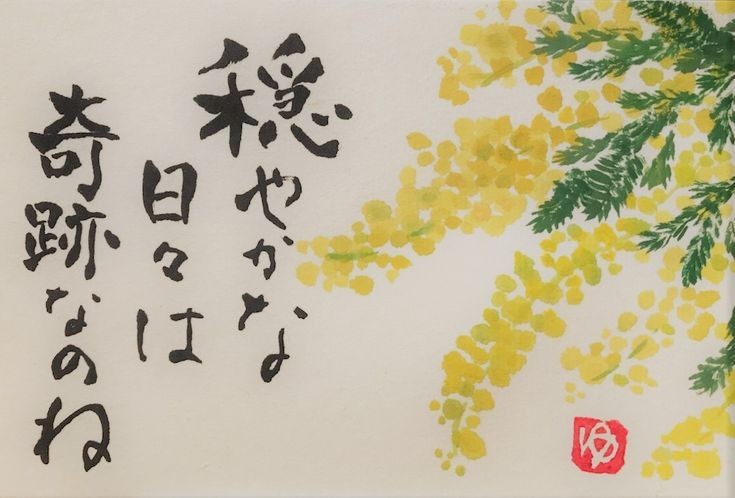 穏やかな
日々は
奇跡なのね
ゆ